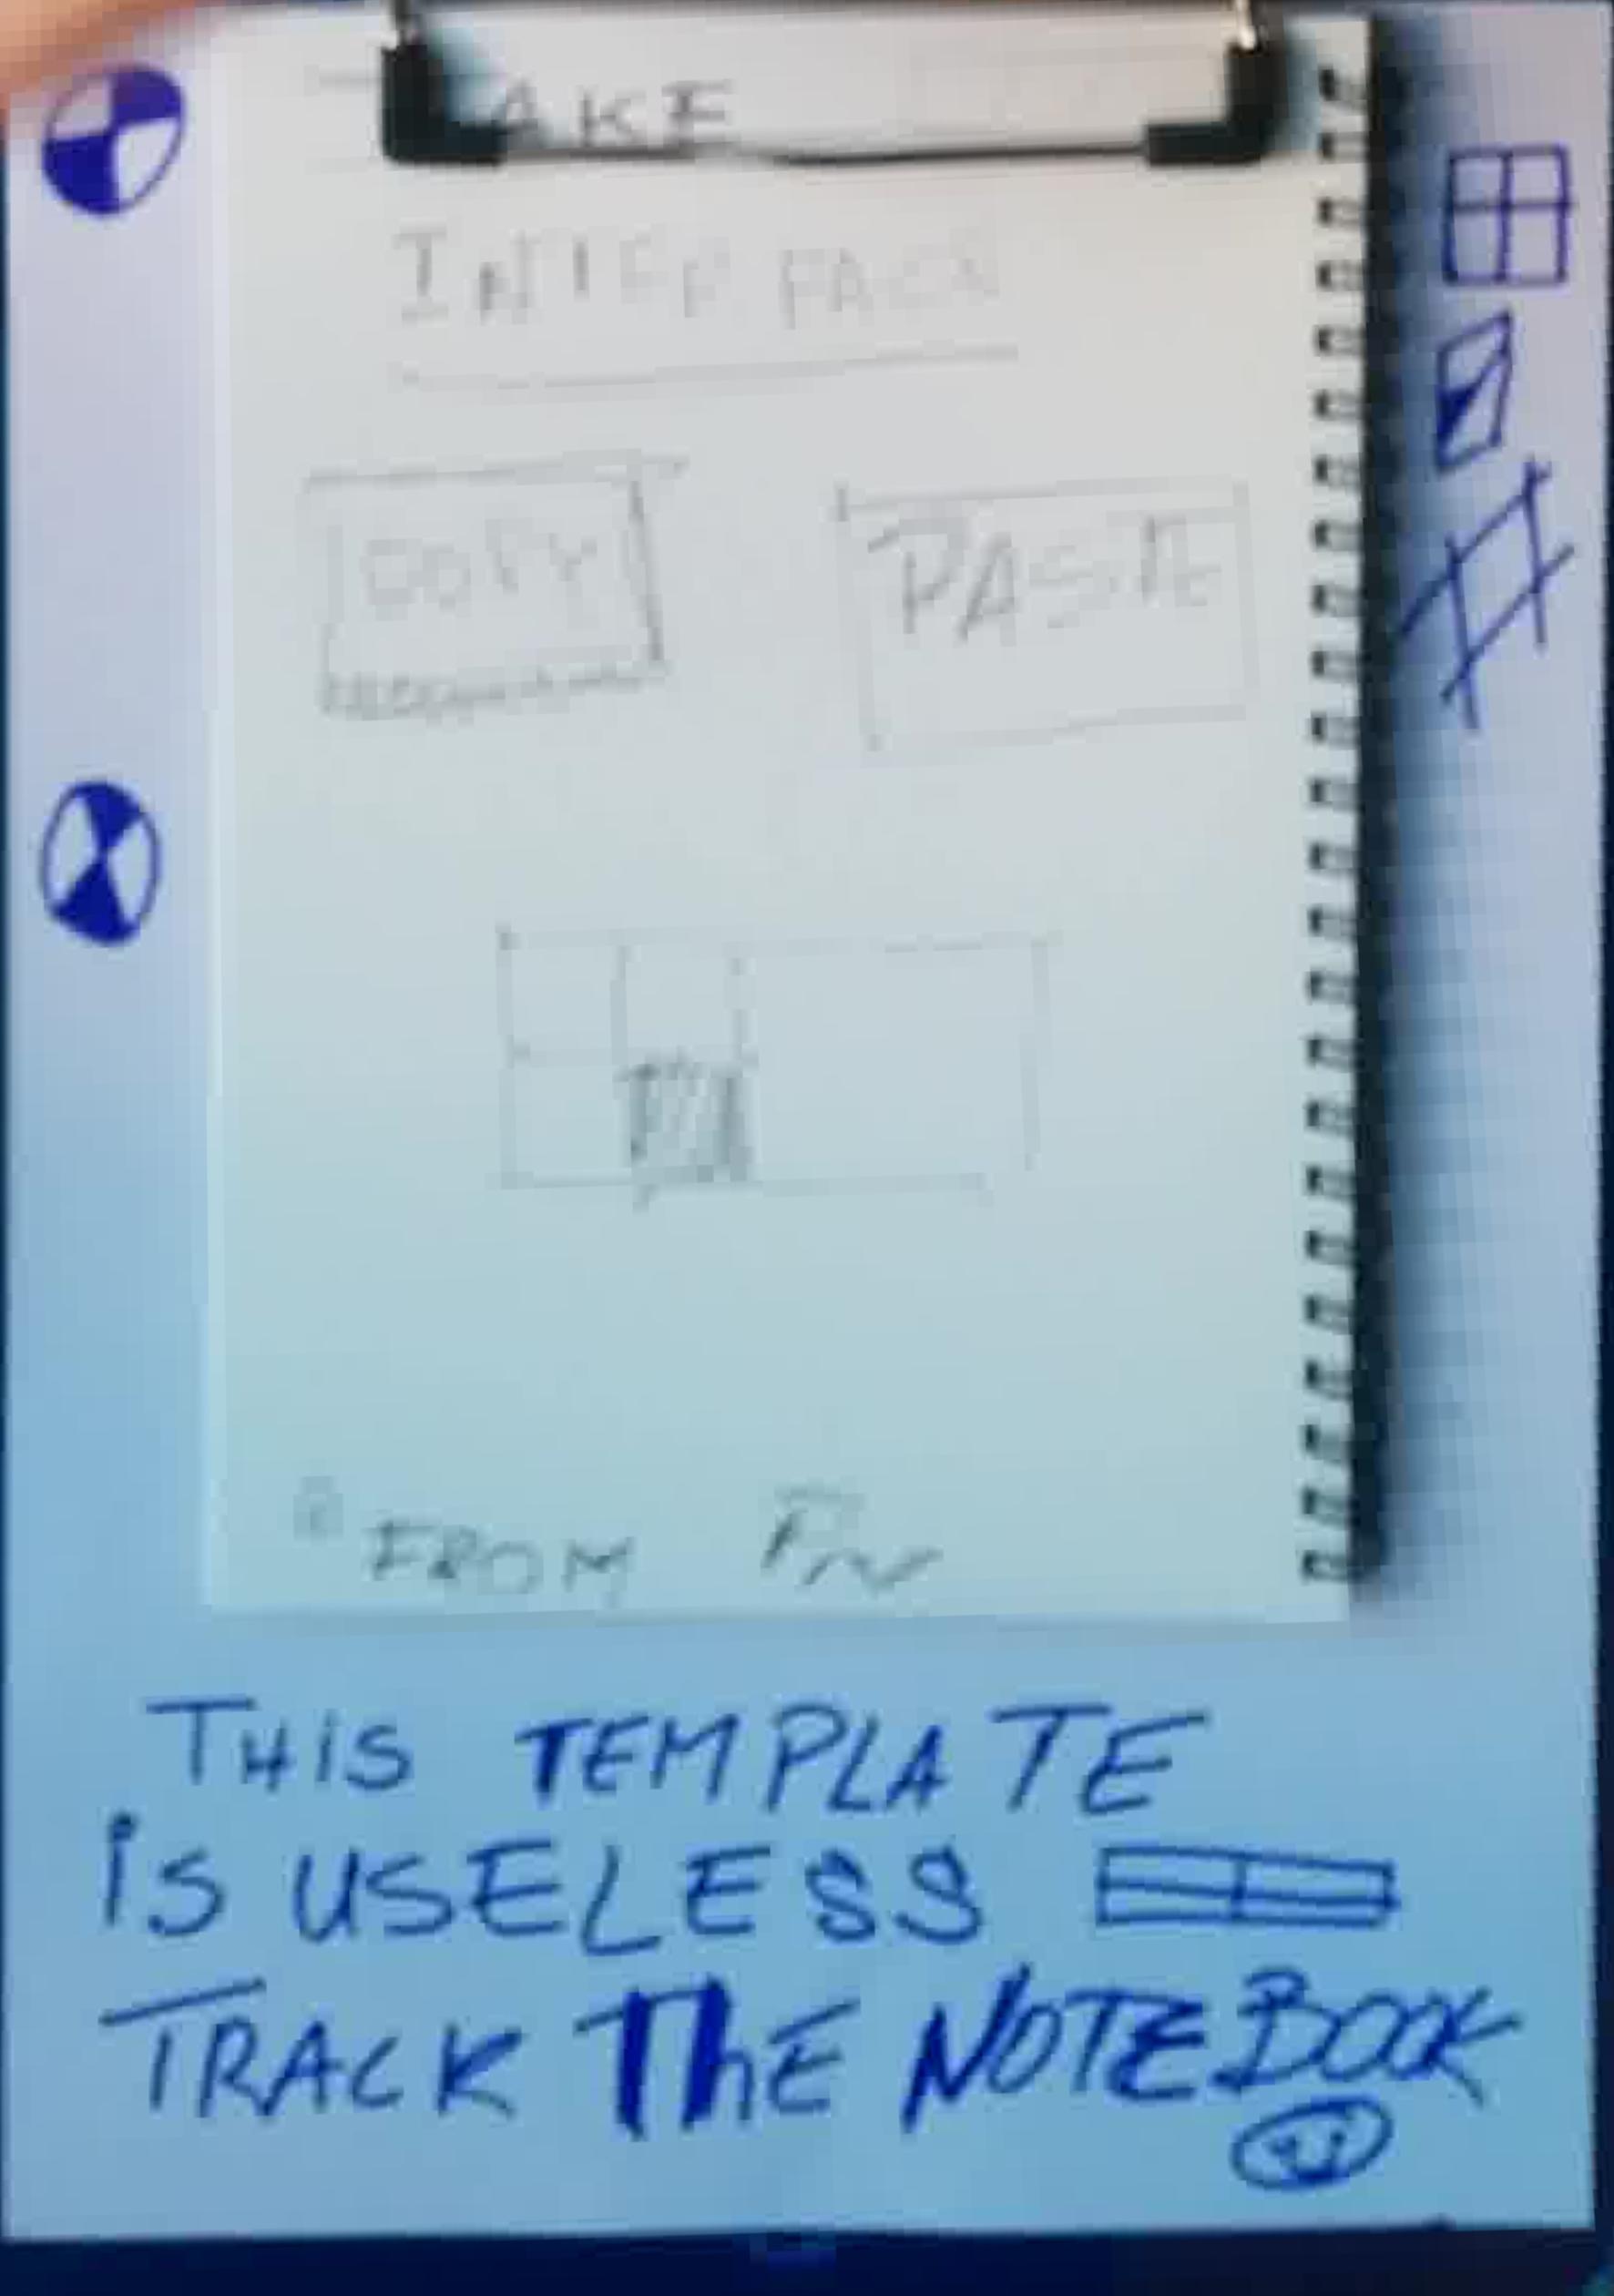 AKE
INTERFACE
COPY PASTE
FROM
THIS TEMPLATE
is USELESS
TRACK ThE NOTEBOOK